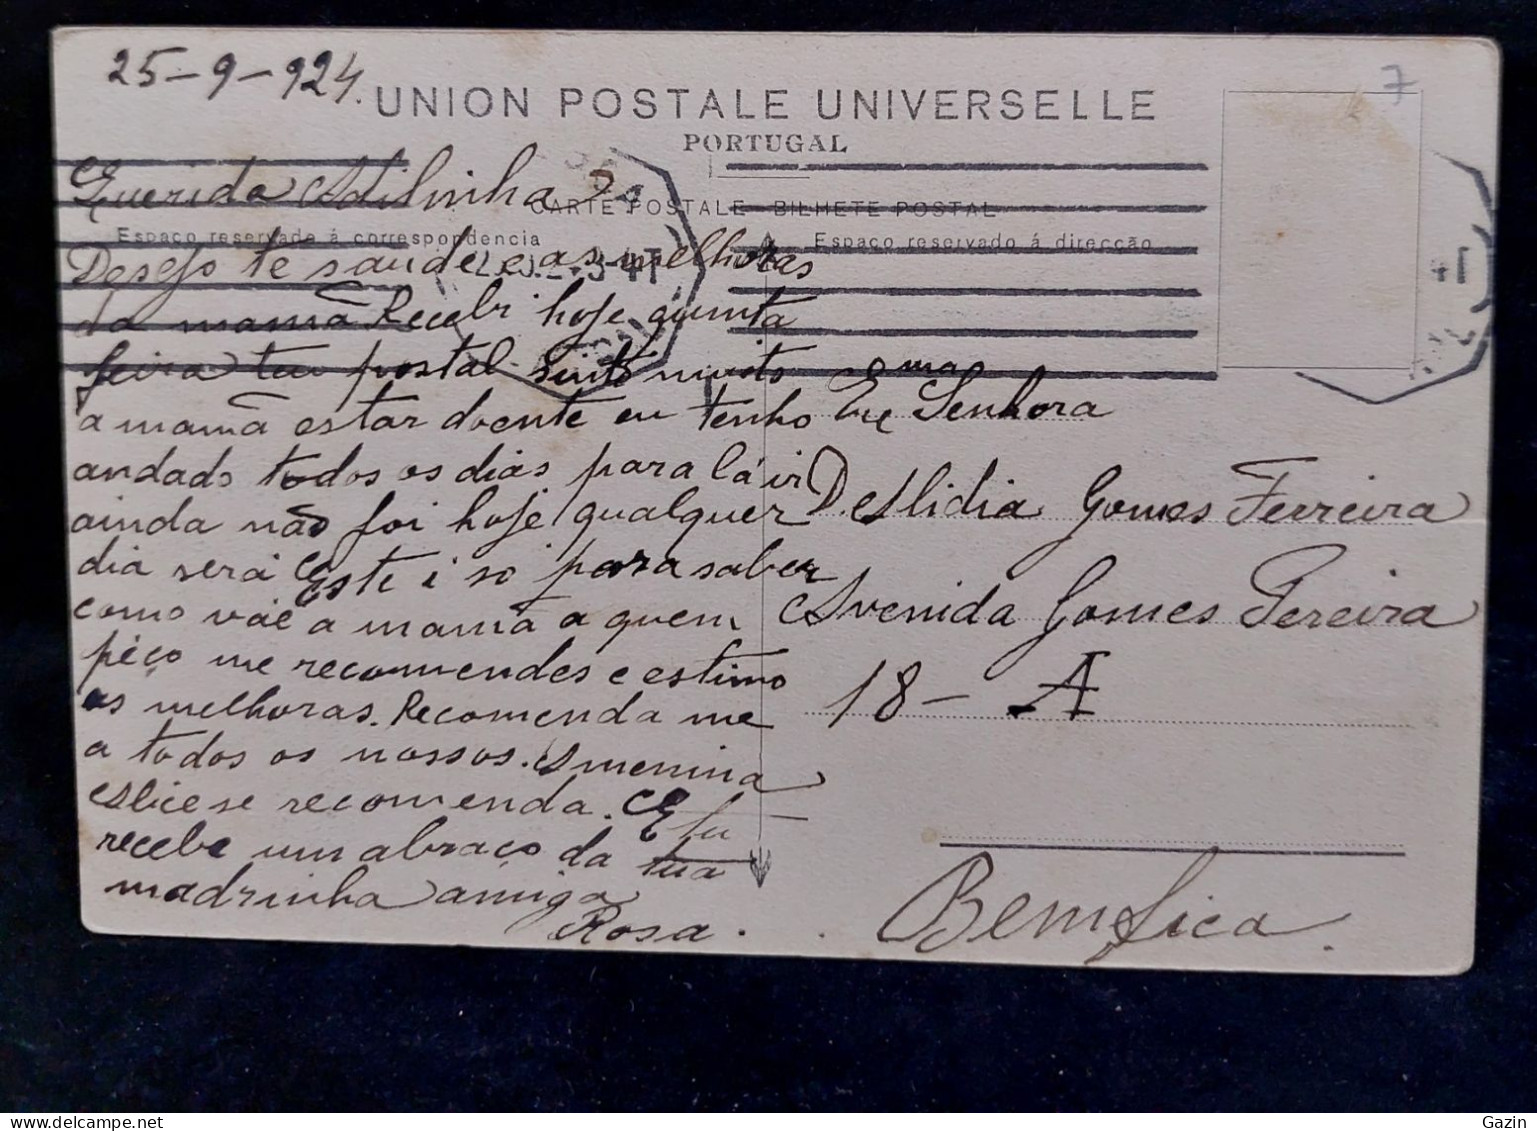 25-9-924.
7
UNION POSTALE UNIVERSELLE
PORTUGAL
CARTE POSTALE BILHETE POSTAL
Espaço reservado á correspondencia
Espaço reservado á direcção
Querida
Desejo te saude e as melhoras
da mamã Recebi hoje quinta
feira teu postal Sinto muito
a mamã estar doente eu tenho
andado todos os dias para lá ir
ainda não foi hoje qualquer
dia será Este i só para saber
como vâe a mamã a quem
péço me recomendes e estimo
as melhoras. Recomenda me
a todos os nossos. A menina
se recomenda. E tu
recebe um abraço da tua
madrinha amiga
Rosa.
Ema Senhora
D. Gomes Ferreira
Avenida Gomes Pereira
18-A
Bemfica.
Gazin